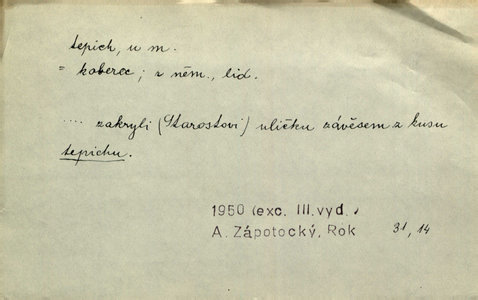 tepich, u m.
= koberec; z něm., lid.
.... zakryli (Starostovi) uličku závěsem z kusu
tepichu.
1950 (exc. III. vyd.
A. Zápotocký, Rok 31, 14